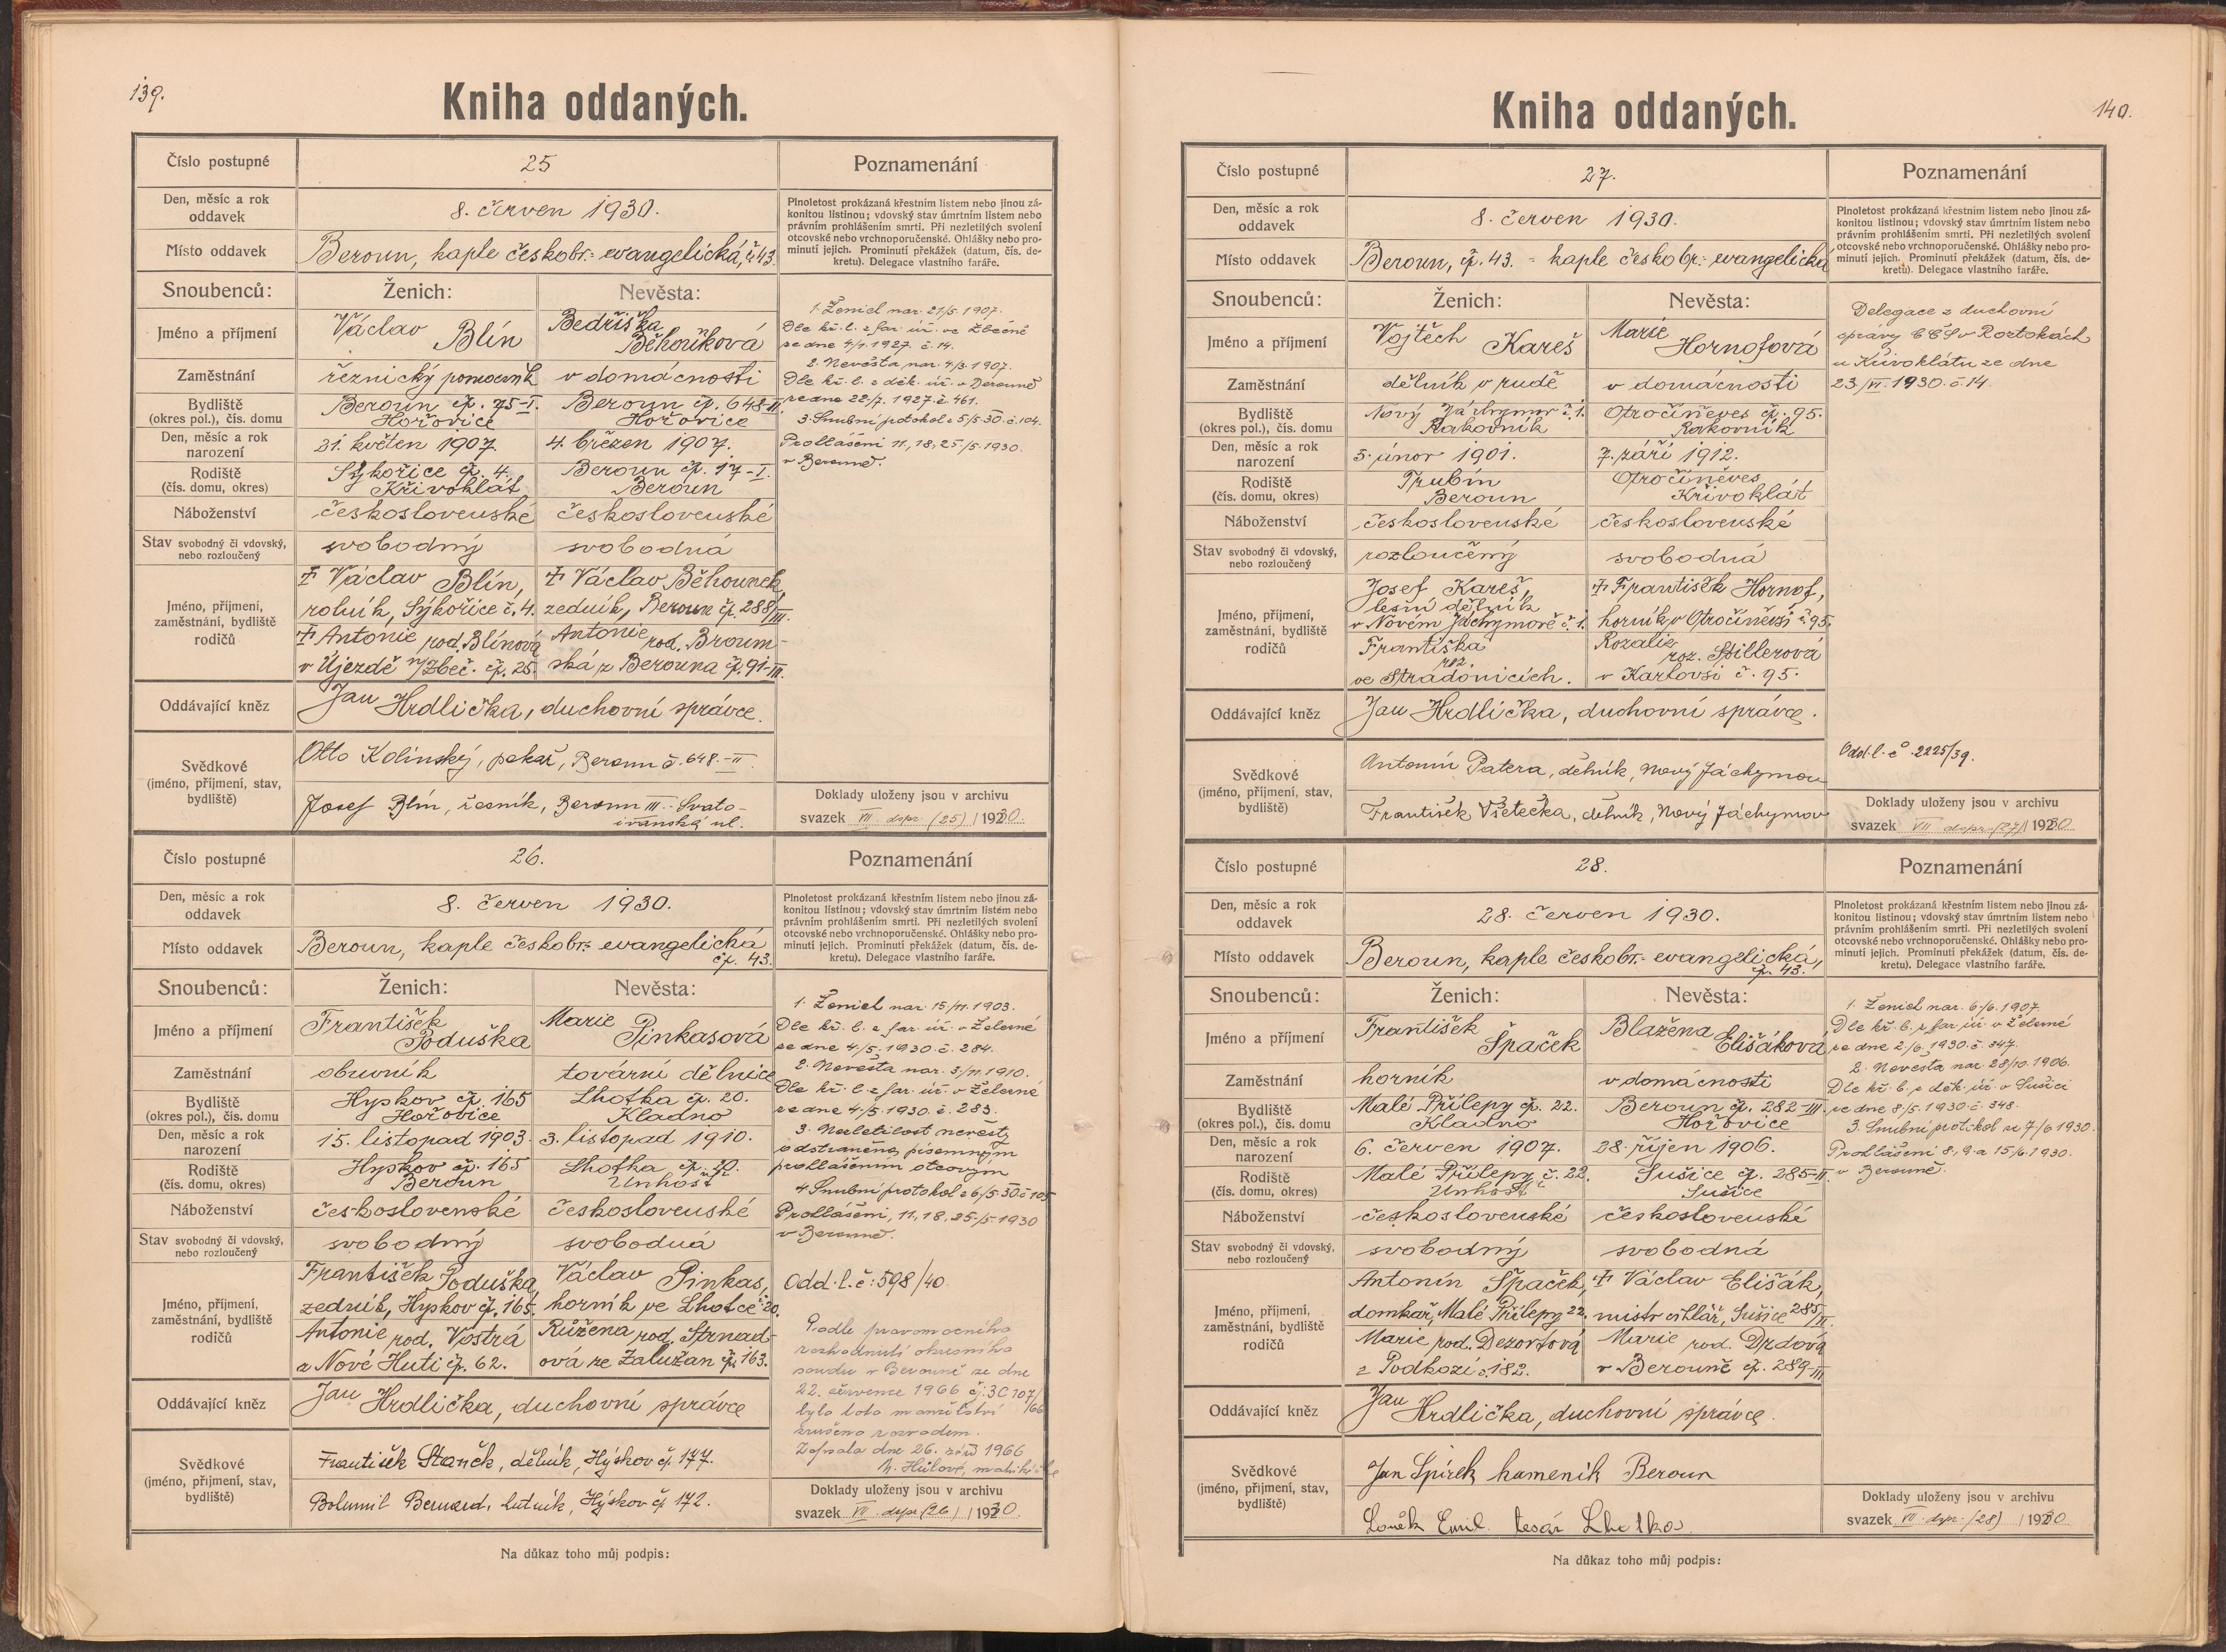 139.
Kniha oddaných.
Číslo postupné
25
Poznamenání
Den, měsíc a rok
oddavek
8. červen 1930.
Plnoletost prokázaná křestním listem nebo jinou zá-
konitou listinou; vdovský stav úmrtním listem nebo
právním prohlášením smrti. Při nezletilých svolení
otcovské nebo vrchnoporučenské. Ohlášky nebo pro-
minutí jejich. Prominutí překážek (datum, čís. de-
kretu). Delegace vlastního faráře.
Místo oddavek
Beroun, kaple českobr.- evangelická, č. 43.
Snoubenců:
Ženich:
Nevěsta:
Jméno a příjmení
Václav Blín
Bedřiška
Běhounková
Zaměstnání
řeznický pomocník
v domácnosti
Bydliště
(okres pol.), čís. domu
Beroun čp. 75-I.
Hořovice
Beroun čp. 648-II.
Hořovice
Den, měsíc a rok
narození
21. květen 1907.
4. březen 1907.
Rodiště
(čís. domu, okres)
Sýkořice čp. 4.
Křivoklát
Beroun čp. 17-I.
Beroun
Náboženství
československé
československé
Stav svobodný či vdovský,
nebo rozloučený
svobodný
svobodná
Jméno, příjmení,
zaměstnání, bydliště
rodičů
† Václav Blín,
rolník, Sýkořice č. 4.
† Antonie rod. Blínová
v Újezdě n/Zbeč. čp. 25.
† Václav Běhounek,
zedník, Beroun čp. 288/III.
Antonie rod. Broum-
ská z Berouna čp. 91-III.
Oddávající kněz
Jan Hrdlička, duchovní správce.
Svědkové
(jméno, příjmení, stav,
bydliště)
Otto Kolínský, pekař, Beroun č. 648.-II.
Josef Blín, řezník, Beroun III.- Svato-
ivanská ul.
1. Ženich nar. 21/5. 1907.
Dle kř. l. z far. úř. ve Zbečně
ze dne 4/7. 1927. č. 14.
2. Nevěsta nar. 4/3. 1907.
Dle kř. l. z děk. úř. v Berouně
ze dne 22/7. 1927. č. 461.
3. Snubní protokol z 5/5. 30. č. 104.
Prohlášeni 11, 18, 25/5. 1930.
v Berouně.
Doklady uloženy jsou v archivu
svazek VII. dopr. (25) 1930.
Číslo postupné
26.
Poznamenání
Den, měsíc a rok
oddavek
8. červen 1930.
Plnoletost prokázaná křestním listem nebo jinou zá-
konitou listinou; vdovský stav úmrtním listem nebo
právním prohlášením smrti. Při nezletilých svolení
otcovské nebo vrchnoporučenské. Ohlášky nebo pro-
minutí jejich. Prominutí překážek (datum, čís. de-
kretu). Delegace vlastního faráře.
Místo oddavek
Beroun, kaple českobr.- evangelická
čp. 43.
Snoubenců:
Ženich:
Nevěsta:
Jméno a příjmení
František
Poduška
Marie
Pinkasová
Zaměstnání
obuvník
tovární dělnice
Bydliště
(okres pol.), čís. domu
Hyskov čp. 165
Hořovice
Lhotka čp. 20.
Kladno
Den, měsíc a rok
narození
15. listopad 1903.
3. listopad 1910.
Rodiště
(čís. domu, okres)
Hyskov čp. 165
Beroun
Lhotka čp. 20.
Unhošť
Náboženství
československé
československé
Stav svobodný či vdovský,
nebo rozloučený
svobodný
svobodná
Jméno, příjmení,
zaměstnání, bydliště
rodičů
František Poduška,
zedník, Hyskov čp. 165.
Antonie rod. Vostrá
z Nové Huti čp. 62.
Václav Pinkas,
horník ve Lhotce č. 20.
Růžena rod. Strnad-
ová ze Zalužan čp. 163.
Oddávající kněz
Jan Hrdlička, duchovní správce
Svědkové
(jméno, příjmení, stav,
bydliště)
František Staněk, dělník, Hýskov čp. 177.
Bohumil Bernard, hutník, Hýskov čp. 172.
1. Ženich nar. 15/11. 1903.
Dle kř. l. z far. úř. v Železné
ze dne 4/5. 1930. č. 284.
2. Nevěsta nar. 3/11. 1910.
Dle kř. l. z far. úř. v Železné
ze dne 4/5. 1930. č. 283.
3. Nezletilost nevěsty
odstraněna písemným
prohlášením otcovým
4. Snubní protokol z 6/5. 30. č. 105
Prohlášeni, 11, 18, 25./5. 1930
v Berouně.
Odd. l. č: 598/40.
Podle pravomocného
rozhodnutí okresního
soudu v Berouně ze dne
22. července 1966 čj. 3C 107/66
bylo toto manželství
zrušeno rozvodem.
Zapsala dne 26. září 1966
Doklady uloženy jsou v archivu
svazek VII. dopr. (26) 1930.
Na důkaz toho můj podpis:
140.
Kniha oddaných.
Číslo postupné
27.
Poznamenání
Den, měsíc a rok
oddavek
8. červen 1930.
Plnoletost prokázaná křestním listem nebo jinou zá-
konitou listinou; vdovský stav úmrtním listem nebo
právním prohlášením smrti. Při nezletilých svolení
otcovské nebo vrchnoporučenské. Ohlášky nebo pro-
minutí jejich. Prominutí překážek (datum, čís. de-
kretu). Delegace vlastního faráře.
Místo oddavek
Beroun, čp. 43. - kaple českobr.- evangelická
Snoubenců:
Ženich:
Nevěsta:
Jméno a příjmení
Vojtěch Kareš
Marie
Hornofová
Zaměstnání
dělník v rudě
v domácnosti
Bydliště
(okres pol.), čís. domu
Nový Jáchymov č. 1.
Rakovník
Otročiněves čp. 95.
Rakovník
Den, měsíc a rok
narození
5. únor 1901.
7. září 1912.
Rodiště
(čís. domu, okres)
Trubín
Beroun
Otročiněves
Křivoklát
Náboženství
československé
československé
Stav svobodný či vdovský,
nebo rozloučený
rozloučený
svobodná
Jméno, příjmení,
zaměstnání, bydliště
rodičů
Josef Kareš,
lesní dělník
v Novém Jáchymově č. 1.
Františka
roz.
ve Stradonicích.
† František Hornof,
horník v Otročiněvsi č. 95.
Rozalie
roz. Spillerová
v Karlovsi č. 95.
Oddávající kněz
Jan Hrdlička, duchovní správce.
Svědkové
(jméno, příjmení, stav,
bydliště)
Antonín Patera, dělník, Nový Jáchymov
František Všetečka, dělník, Nový Jáchymov
Delegace z duchovní
správy CČS v Roztokách
u Křivoklátu ze dne
23/VI. 1930. č. 14.
Odd. l. č. 2225/39.
Doklady uloženy jsou v archivu
svazek VII dopr. (27) 1930
Číslo postupné
28.
Poznamenání
Den, měsíc a rok
oddavek
28. červen 1930.
Plnoletost prokázaná křestním listem nebo jinou zá-
konitou listinou; vdovský stav úmrtním listem nebo
právním prohlášením smrti. Při nezletilých svolení
otcovské nebo vrchnoporučenské. Ohlášky nebo pro-
minutí jejich. Prominutí překážek (datum, čís. de-
kretu). Delegace vlastního faráře.
Místo oddavek
Beroun, kaple českobr.- evangelická,
čp. 43.
Snoubenců:
Ženich:
Nevěsta:
Jméno a příjmení
František
Špaček
Blažena
Elišáková
Zaměstnání
horník
v domácnosti
Bydliště
(okres pol.), čís. domu
Malé Přílepy čp. 22.
Kladno
Beroun čp. 282-III.
Hořovice
Den, měsíc a rok
narození
6. červen 1907.
28. říjen 1906.
Rodiště
(čís. domu, okres)
Malé Přílepy č. 22.
Unhošť
Sušice čp. 285-II.
Sušice
Náboženství
československé
československé
Stav svobodný či vdovský,
nebo rozloučený
svobodný
svobodná
Jméno, příjmení,
zaměstnání, bydliště
rodičů
Antonín Špaček,
domkař, Malé Přílepy 22.
Marie rod. Dezortová
z Podkozí č. 182.
† Václav Elišák,
mistr cihlář, Sušice 285/II.
Marie rod. Drdová
v Berouně čp. 289-III
Oddávající kněz
Jan Hrdlička, duchovní správce.
Svědkové
(jméno, příjmení, stav,
bydliště)
Jan Spírek kameník Beroun
Loněk Emil. tesár Lhotka.
1. Ženich nar. 6/6. 1907.
Dle kř. l. z far. úř. v Železné
ze dne 2/6. 1930. č. 347.
2. Nevěsta nar. 28/10. 1906.
Dle kř. l. z děk. úř. v Sušici
ze dne 8/5. 1930. č. 348.
3. Snubní protokol ze 7/6 1930.
Prohlášeni 8, 9. a 15/6. 1930.
v Berouně.
Doklady uloženy jsou v archivu
svazek VII. dopr. (28) 1930.
Na důkaz toho můj podpis: